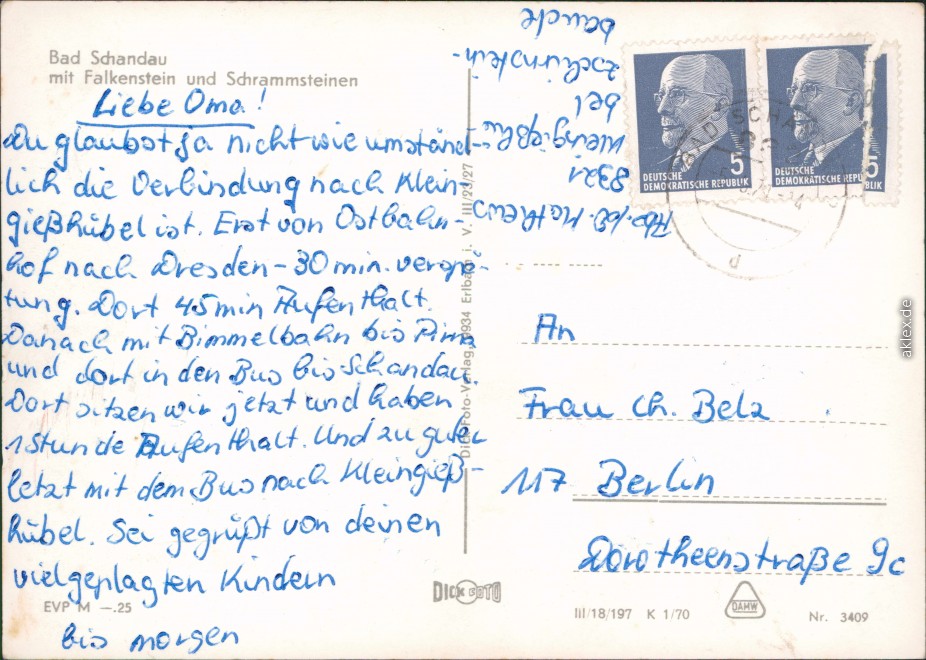 Bad Schandau
mit Falkenstein und Schrammsteinen
Liebe Oma!
Du glaubst ja nicht wie umständ-
lich die Verbindung nach Klein-
gießhübel ist. Erst von Ostbahn-
hof nach Dresden - 30 min. verspä-
tung. Dort 45 min Aufenthalt.
Danach mit Bimmelbahn bis Pirna
und dort in den Bus bis Schandau.
Dort sitzen wir jetzt und haben
1 Stunde Aufenthalt. Und zu guter
letzt mit dem Bus nach Kleingieß-
hübel. Sei gegrüßt von deinen
vielgeplagten Kindern
bis morgen
EVP M —.25
Dick-Foto-Verlag, 9934 Erlbach i. V. III/23/27
DICK FOTO
Abs. bei Mathews
8321
Kleingießhü
bel
Zschirnstein-
baude
DEUTSCHE
DEMOKRATISCHE REPUBLIK
5
DEUTSCHE
DEMOKRATISCHE REPUBLIK
5
BAD SCHANDAU
An
Frau Ch. Belz
117 Berlin
Dorotheenstraße 9c
III/18/197 K 1/70
DAHW
Nr. 3409
aklex.de